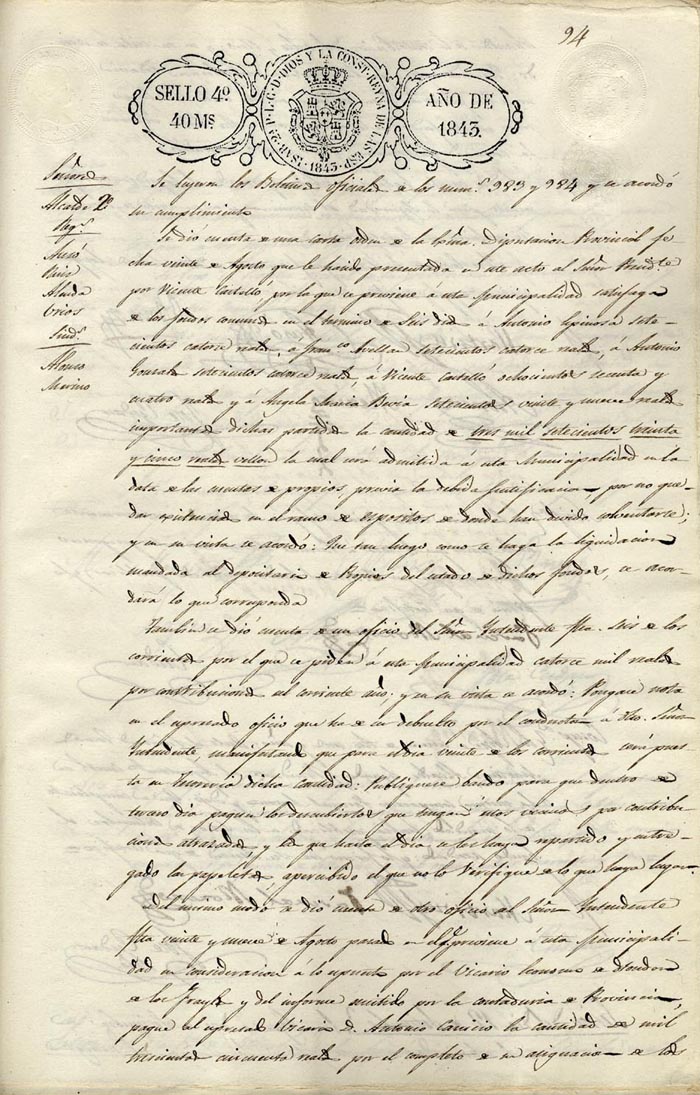 94
SELLO 4º
40 Ms.
ISAB. 2ª P. L. G. D. DIOS Y LA CONST. REYNA DE LAS ESP. 1843.
AÑO DE
1843.
Señores
Alcalde 2º
Reg.s
Ruiz
Sínd.s
Alonso
Merino
Se leyeron los Boletines oficiales de los num.s 983 y 984 y se acordó
su cumplimiento
Se dió cuenta de una carta orden de la Exma. Diputacion Provincial fe-
cha veinte de Agosto que le ha sido presentada en este acto al Señor
por Vicente Castelló, por la que se previene á esta Municipalidad satisfaga
de los fondos comunes en el termino de Seis dias á Antonio Espinosa sete-
cientos catorce reales, á Fran.co Avellan setecientos catorce reales, á Antonio
Gonzalez setecientos catorce reales, á Vicente Castelló ochocientos sesenta y
cuatro reales y a Angela Maria Bevia setecientos veinte y nueve reales
importantes dichas partidas la cantidad de tres mil setecientos treinta
y cinco reales vellon la cual será admitida á esta Municipalidad en la
data de las cuentas de propios, previa la debida justificacion, por no que-
dar existencias en el ramo de espositos de donde han devido solventarse;
y en su vista se acordó: Que tan luego como se haga la liquidacion
mandada al depositario de Propios del estado de dichos fondos, se acor-
dará lo que corresponda
Tambien se dió cuenta de un oficio del Señor Intendente fha. Seis de los
corrientes por el que se piden á esta Municipalidad catorce mil reales
por contribuciones del corriente año; y en su vista se acordó: Pongase nota
en el espresado oficio que ha de ser debuelto por el conductor á dho. Señor
Intendente, manifestando que para el dia veinte de los corrientes será pues-
ta en Tesoreria dicha cantidad: Publiquese bando para que dentro de
tercero dia paguen los descubiertos que tengan estos vecinos por contribu-
ciones atrasadas y las que hasta el dia se les haya repartido y entre-
gado las papeletas apercibido el que no lo Verifique de lo que haya lugar.
Del mismo modo se dio cuenta de otro oficio del Señor Intendente
fha veinte y nueve de Agosto pasado en el que previene á esta Municipali-
dad en consideracion á lo espuesto por el Vicario Economo de Hondon
de los Frayles y del informe emitido por la contaduria de Provincia,
pague al espresado Vicario D. Antonio la cantidad de mil
trescientos cincuenta reales por el completo de su asignacion de los